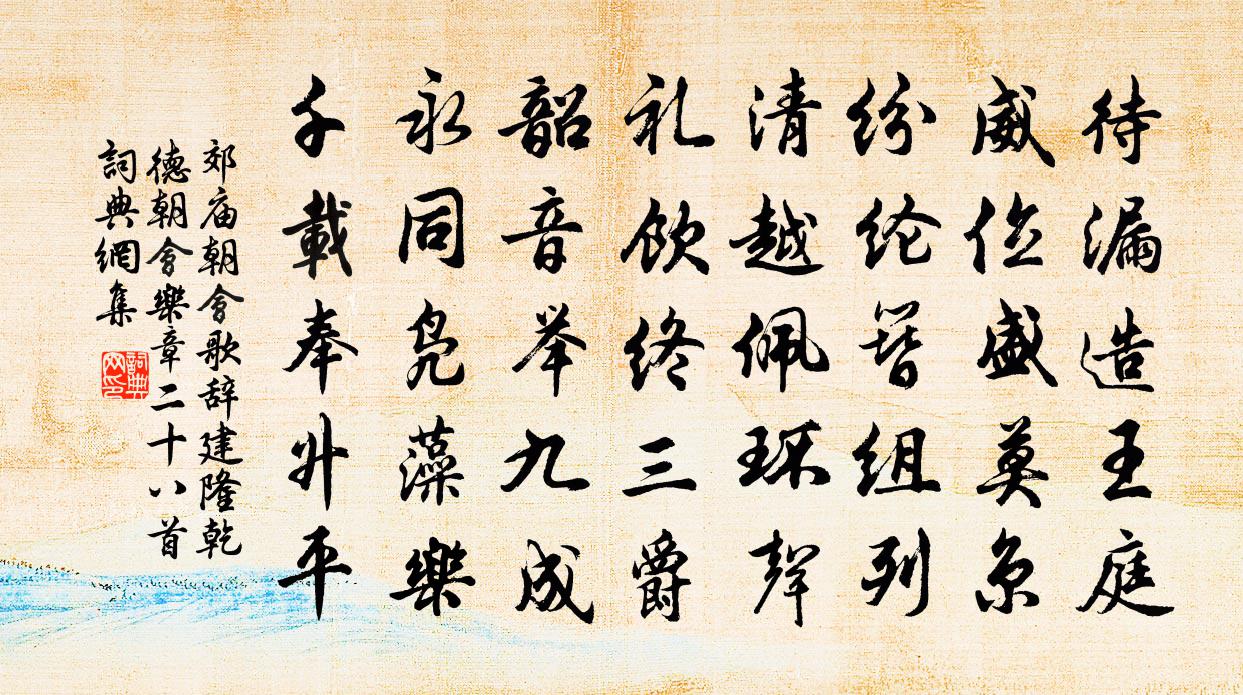 待漏造王庭
威仪盛莫京
纷纶簪组列
清越佩环聲
礼飲终三爵
韶音举九成
永同凫藻樂
千載奉升平
郊庙朝會歌辞建隆乾
德朝會樂章二十八首
詞典網集
詞典网印